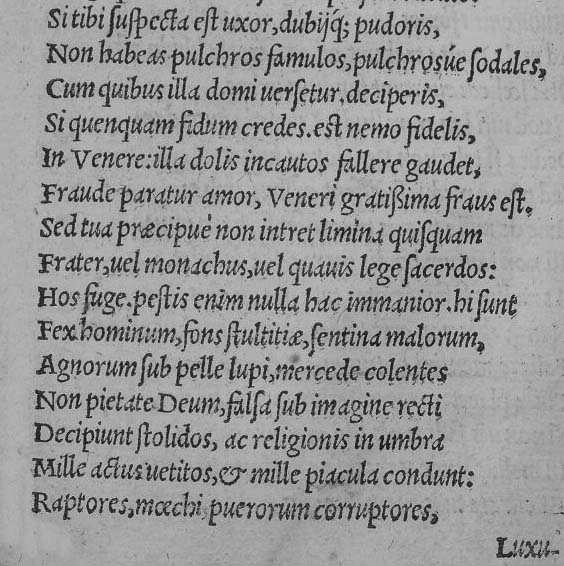 Si tibi suspecta est uxor, dubijq́; pudoris,
Non habeas pulchros famulos, pulchrosúe sodales,
Cum quibus illa domi uersetur. deciperis,
Si quenquam fidum credes. est nemo fidelis,
In Venere: illa dolis incautos fallere gaudet,
Fraude paratur amor, Veneri gratißima fraus est.
Sed tua præcipuè non intret limina quisquam
Frater, uel monachus, uel quauis lege sacerdos:
Hos fuge. pestis enim nulla hac immanior. hi sunt
Fex hominum, fons stultitiæ, sentina malorum,
Agnorum sub pelle lupi, mercede colentes
Non pietate Deum, falsa sub imagine recti
Decipiunt stolidos, ac religionis in umbra
Mille actus uetitos, & mille piacula condunt:
Raptores, mœchi, puerorum corruptores,
Luxu-